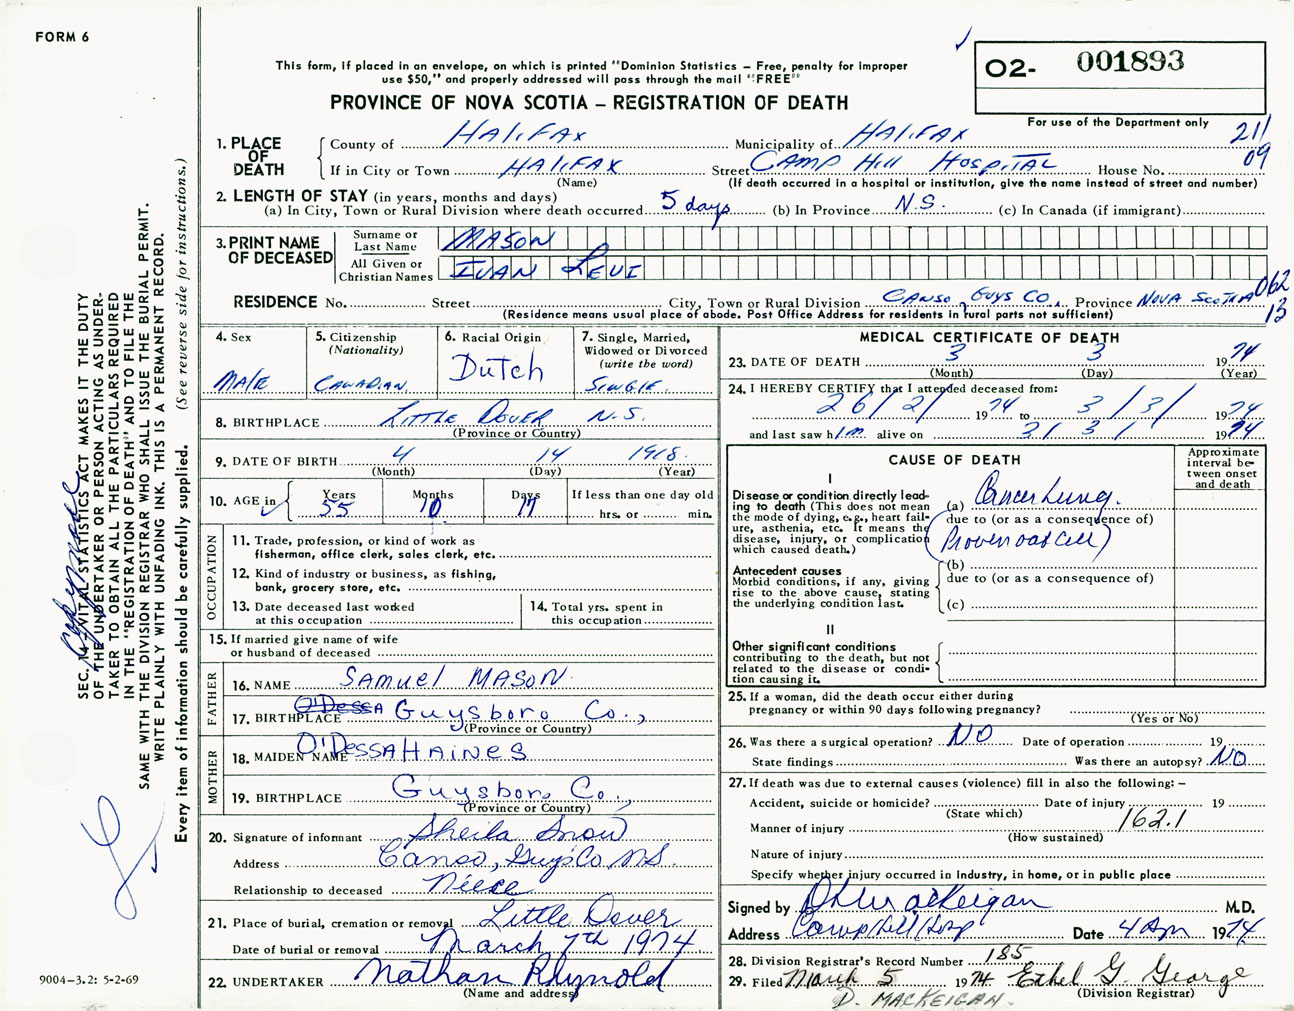 FORM 6
This form, if placed in an envelope, on which is printed "Dominion Statistics – Free, penalty for improper
use $50," and properly addressed will pass through the mail "FREE"
PROVINCE OF NOVA SCOTIA – REGISTRATION OF DEATH
O2- 001893
For use of the Department only
211
09
1. PLACE OF DEATH
County of HALIFAX Municipality of HALIFAX
If in City or Town HALIFAX Street CAMP HILL HOSPITAL House No.
(Name) (If death occurred in a hospital or institution, give the name instead of street and number)
2. LENGTH OF STAY (in years, months and days)
(a) In City, Town or Rural Division where death occurred 5 days (b) In Province N.S. (c) In Canada (if immigrant)
3. PRINT NAME OF DECEASED
Surname or Last Name MASON
All Given or Christian Names IVAN LEVI
RESIDENCE No. Street City, Town or Rural Division CANSO, GUYS CO., Province NOVA SCOTIA
062
13
(Residence means usual place of abode. Post Office Address for residents in rural parts not sufficient)
4. Sex MALE
5. Citizenship (Nationality) CANADIAN
6. Racial Origin Dutch
7. Single, Married, Widowed or Divorced (write the word) SINGLE
8. BIRTHPLACE LITTLE DOVER N.S.
(Province or Country)
9. DATE OF BIRTH 4 14 1918
(Month) (Day) (Year)
10. AGE in Years 55 Months 10 Days 17 If less than one day old hrs. or min.
OCCUPATION
11. Trade, profession, or kind of work as
fisherman, office clerk, sales clerk, etc.
12. Kind of industry or business, as fishing,
bank, grocery store, etc.
13. Date deceased last worked
at this occupation
14. Total yrs. spent in
this occupation
15. If married give name of wife
or husband of deceased
FATHER
16. NAME SAMUEL MASON
17. BIRTHPLACE O'DESSA Guysboro Co.,
(Province or Country)
MOTHER
18. MAIDEN NAME O'DESSA HAINES
19. BIRTHPLACE Guysboro Co.,
(Province or Country)
20. Signature of informant Sheila Snow
Address Canso, Guys Co N.S.
Relationship to deceased Niece
21. Place of burial, cremation or removal Little Dover
Date of burial or removal March 7th 1974
22. UNDERTAKER Nathan Reynold
(Name and address)
MEDICAL CERTIFICATE OF DEATH
23. DATE OF DEATH 3 3 1974
(Month) (Day) (Year)
24. I HEREBY CERTIFY that I attended deceased from:
26/2/ 1974 to 3/3/ 1974
and last saw him alive on 3/3/ 1974
CAUSE OF DEATH
Approximate interval between onset and death
I
Disease or condition directly lead-
ing to death (This does not mean
the mode of dying, e.g., heart fail-
ure, asthenia, etc. It means the
disease, injury, or complication
which caused death.)
(a) Cancer Lung.
due to (or as a consequence of)
(Proven oat cell)
Antecedent causes
Morbid conditions, if any, giving
rise to the above cause, stating
the underlying condition last.
(b)
due to (or as a consequence of)
(c)
II
Other significant conditions
contributing to the death, but not
related to the disease or condi-
tion causing it.
25. If a woman, did the death occur either during
pregnancy or within 90 days following pregnancy?
(Yes or No)
26. Was there a surgical operation? NO Date of operation 19
State findings Was there an autopsy? NO
27. If death was due to external causes (violence) fill in also the following: –
Accident, suicide or homicide? Date of injury 19
(State which)
Manner of injury 162.1
(How sustained)
Nature of injury
Specify whether injury occurred in Industry, in home, or in public place
Signed by D H MacKeigan M.D.
Address Camp Hill Hosp Date 4 Apr 1974
28. Division Registrar's Record Number 185
29. Filed March 5 1974 Ethel G. George
(Division Registrar)
D. MACKEIGAN.
SEC. 14–VITAL STATISTICS ACT MAKES IT THE DUTY
OF THE UNDERTAKER OR PERSON ACTING AS UNDER-
TAKER TO OBTAIN ALL THE PARTICULARS REQUIRED
IN THE "REGISTRATION OF DEATH" AND TO FILE THE
SAME WITH THE DIVISION REGISTRAR WHO SHALL ISSUE THE BURIAL PERMIT.
WRITE PLAINLY WITH UNFADING INK. THIS IS A PERMANENT RECORD.
Every item of information should be carefully supplied. (See reverse side for instructions.)
9004–3.2: 5-2-69